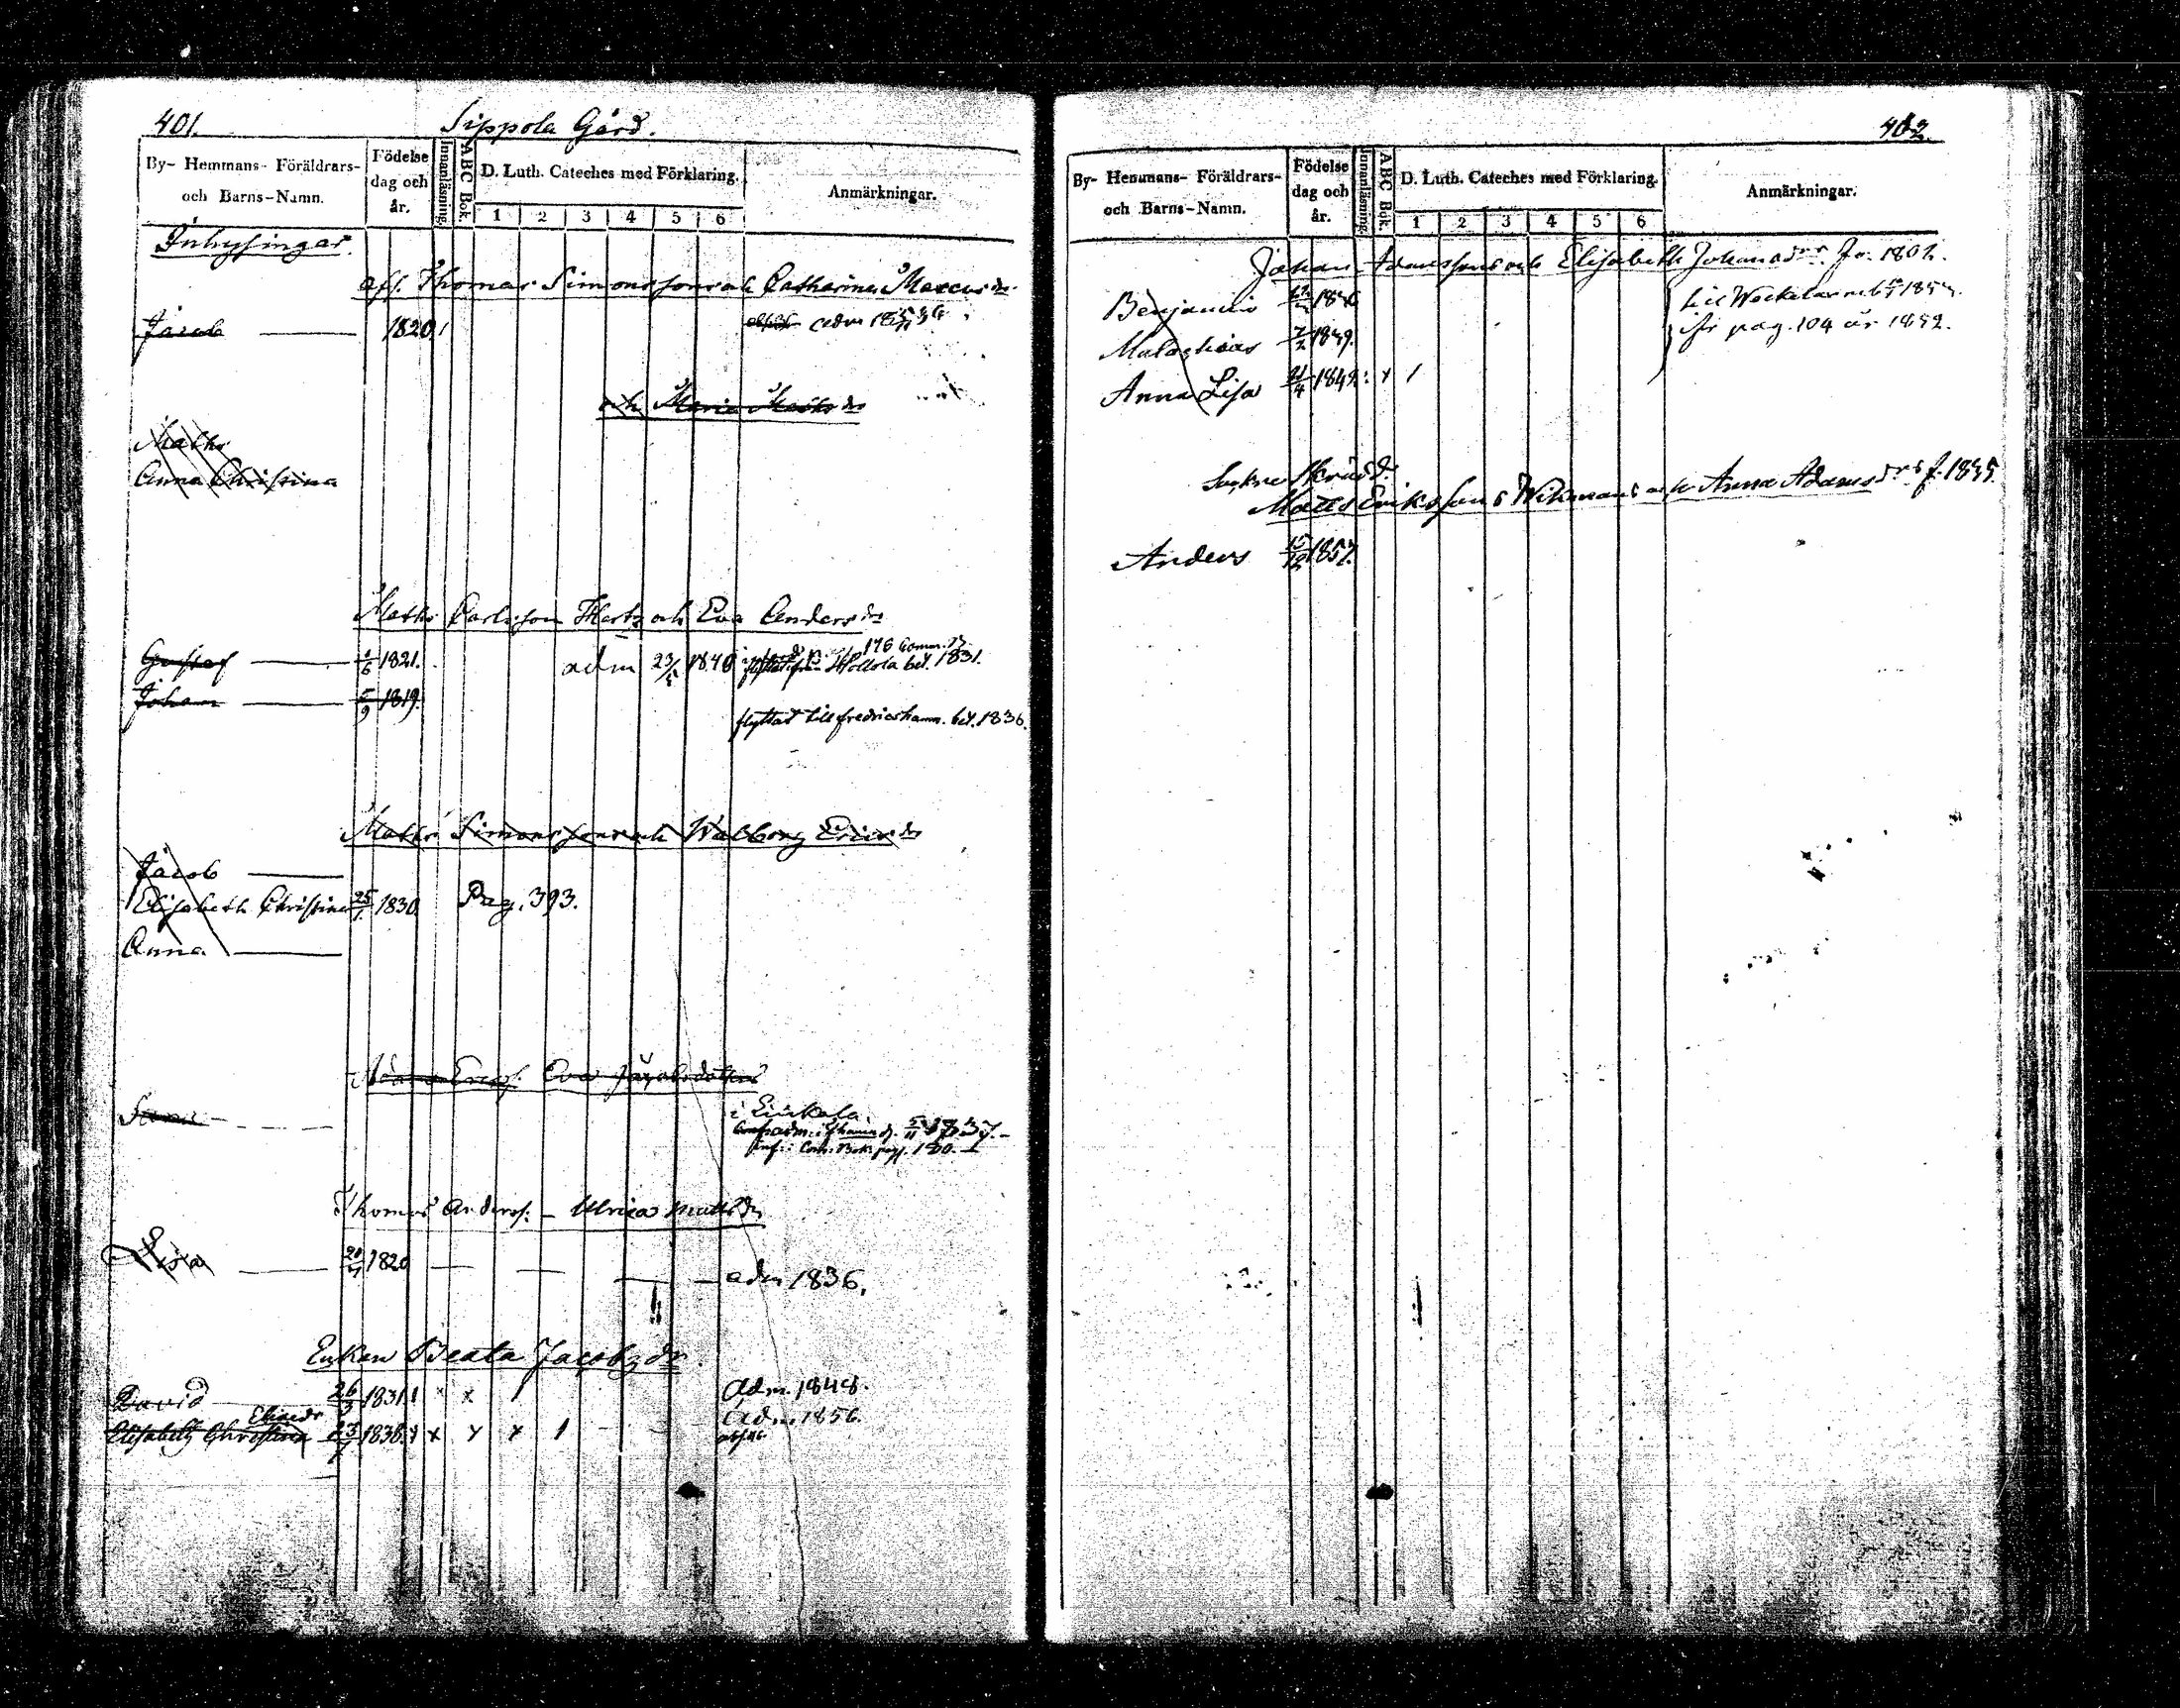 401.
Sippola Gård.
By- Hemmans- Föräldrars- och Barns-Namn.
Födelse dag och år.
Innanläsning.
ABC Bok.
D. Luth. Cateches med Förklaring.
1 2 3 4 5 6
Anmärkningar.
Inhysingar.
afl. Thomas Simonssons och Catharina Marcusdr
Jacob 1820 adm
och Maria Matsdr
Maths
Anna Christina
Maths Carlsson Hertz och Eva Andersdr
Gustaf 1/6 1821. adm 23/5 1840 Hollola bet. 1831.
Johan 5/9 1819.
flyttat till fredricshamn. bet. 1836.
Maths Simonssons och Walborg Ericsdr
Jacob
Elisabeth Christina 25/1 1830. Pag. 393.
Anna
Adam Ericss. Eva Jacobsdotter
1837.
pag. 180.
Thomas Anderss. - Ulrica Mattsdr
Lisa 1820 adm 1836.
Enkan Beata Jacobsdr.
David 26/3 1831. Adm. 1848.
Elisabeth Christina 23/7 1838. Adm. 1856.
402.
By- Hemmans- Föräldrars- och Barns-Namn.
Födelse dag och år.
Innanläsning.
ABC Bok.
D. Luth. Cateches med Förklaring.
1 2 3 4 5 6
Anmärkningar.
Johan Adamssons och Elisabeth Johansdrs fr. 1802.
Benjamin
Malachias 7/2 1839.
fr pag. 104 år 1852.
Anna Lisa
Sockne Skrädd.
Matts Erikssons Wikmans och Anna Adamsdrs f. 1835.
Anders 15/12 1857.